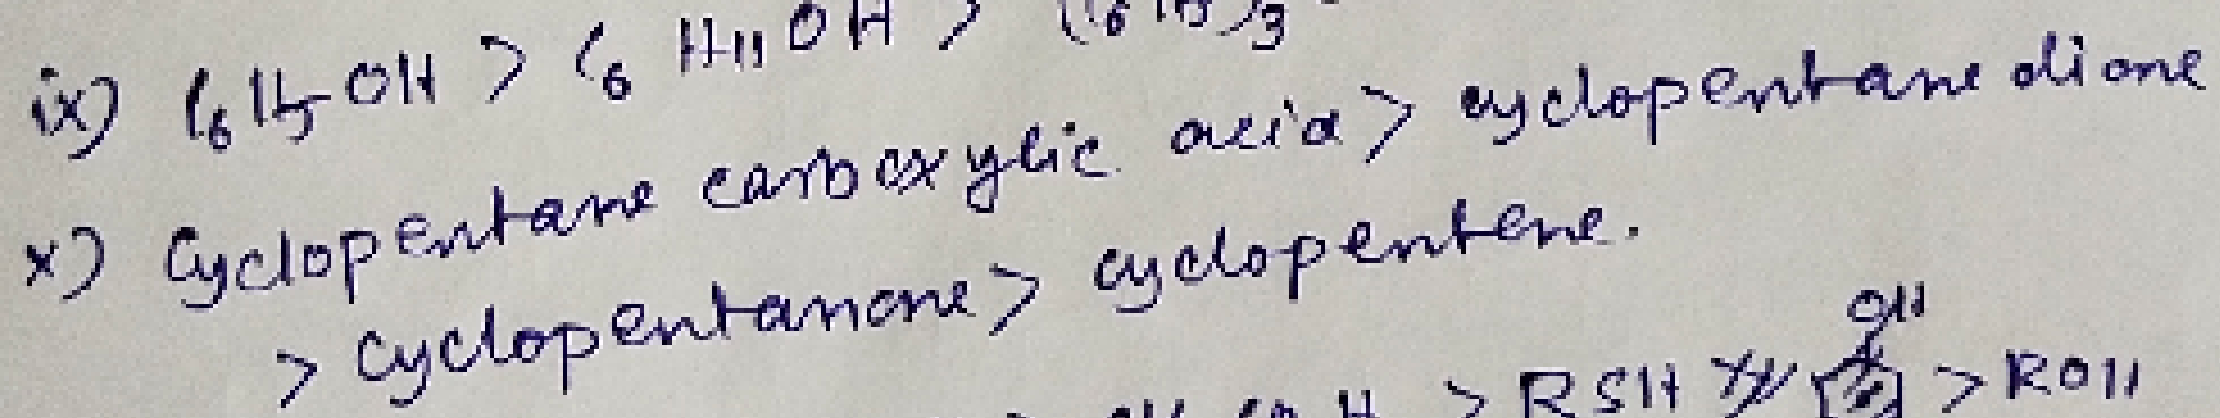 ix) C6H5OH > C6H11OH >
x) Cyclopentane carboxylic acid > cyclopentane dione
> cyclopentanone > cyclopentene.
> RSH >> OH > ROH